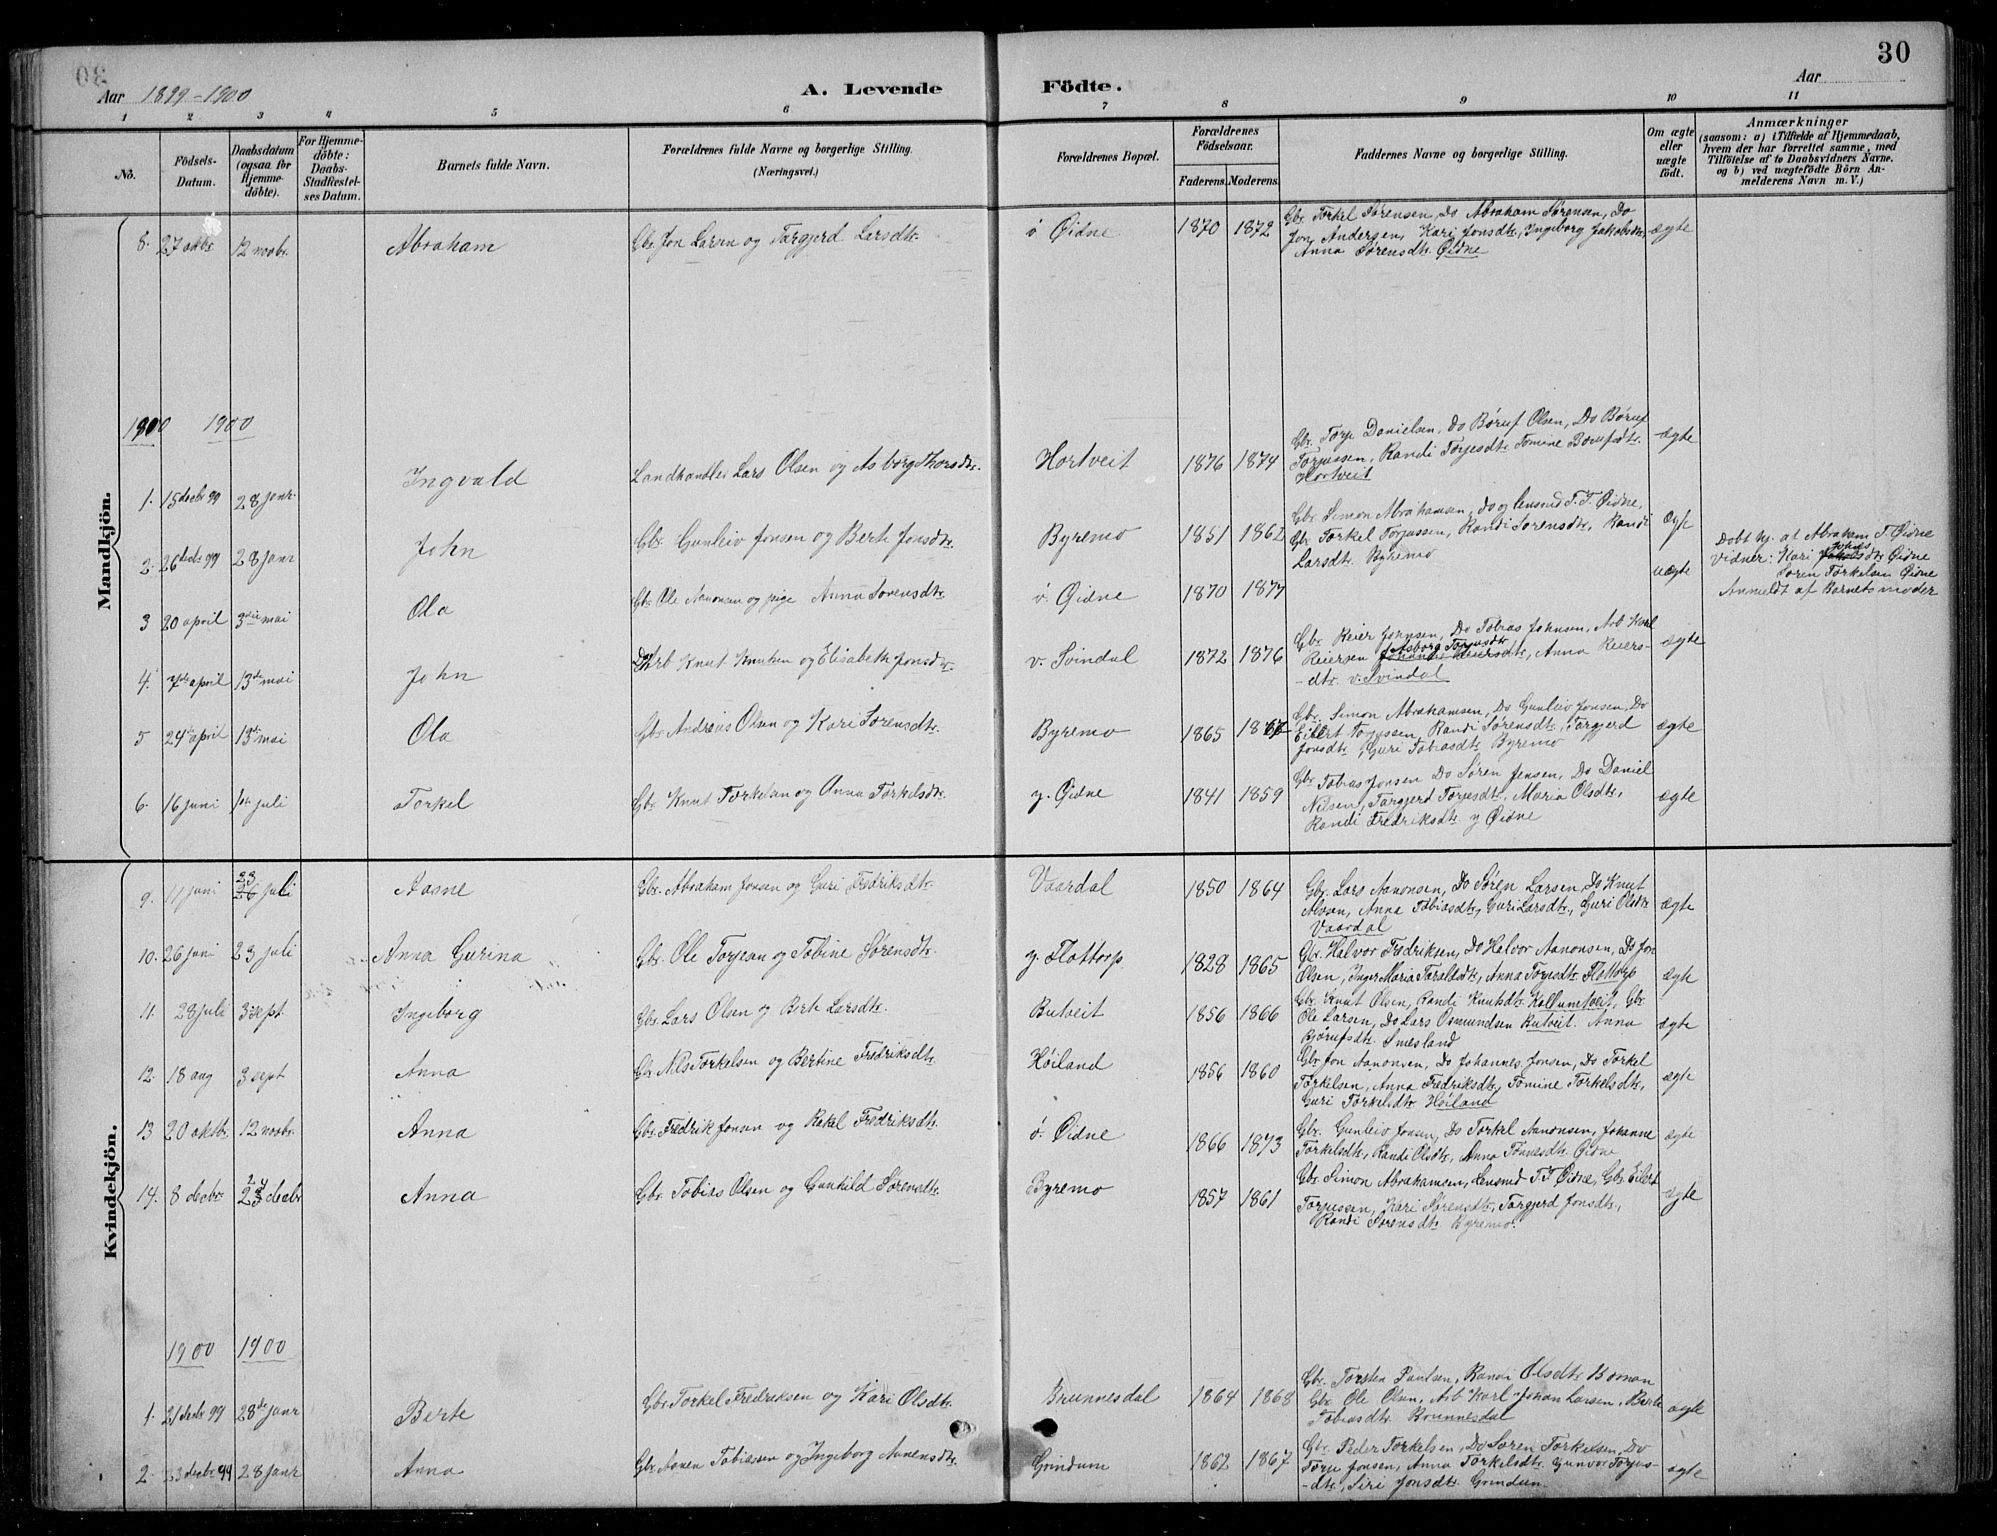 30
Aar 1899-1900
A. Levende Födte.
Aar
1 2 3 4 5 6 7 8 9 10 11
No.
Födsels-Datum.
Daabsdatum (ogsaa for Hjemme-döbte).
For Hjemme-döbte: Daabs-Stadfæstel-ses Datum.
Barnets fulde Navn.
Forældrenes fulde Navne og borgerlige Stilling. (Næringsvei.)
Forældrenes Bopæl.
Forældrenes Födselsaar.
Faderens. Moderens.
Faddernes Navne og borgerlige Stilling.
Om ægte eller uægte födt.
Anmærkninger
(saasom: a) i Tilfælde af Hjemmedaab,
hvem der har forrettet samme, med
Tilföielse af to Daabsvidners Navne.
og b) ved uægtefödte Börn An-
melderens Navn m. V.)
Mandkjön.
8. 27 oktbr. 12 novbr. Abraham Gbr. Jon Larsen og Targjerd Larsdtr. ö Øidne 1870 1872 Gbr. Torkel Sørensen, Do Abraham Sørensen, Do
Jon Andersen, Kari Jonsdtr., Ingeborg Jakobsdtr., ægte
Anna Sørensdtr. Øidne
1900 1900
1. 15 decbr 99 28 janr. Ingvald Landhandler Lars Olsen og Asborg Thorsdtr. Hortveit 1876 1874 Gbr. Torje Danielsen, Do Børuf Olsen, Do Børuf
Torjussen, Randi Torjesdtr. Tomine Børufsdtr. ægte
Hortveit
2. 26 decbr 99 28 janr John Gbr. Gunleiv Jonsen og Berte Jonsdtr. Byremo 1851 1862 Gbr. Simon Abrahamsen, Do og Lensmd T. T. Øidne,
Gbr Torkel Torjussen, Randi Sørensdtr., Randi ægte
Larsdtr. Byremo
3 20 april 3die mai Ola Gbr. Ole Aanonsen og pige Anna Sørensdtr. v. Øidne 1870 1877 uægte
Døbt hj. af Abraham T Øidne
Vidner: Kari Johnsdtr. Øidne
Søren Torkelsen Øidne
Anmeldt af Barnets moder
4. 7de april 13de mai John Arb Knut Knutsen og Elisabeth Jonsdtr v. Svindal 1872 1876 Gbr. Reier Johnsen, Do Tobias Johnsen, Arb Karl
Reiersen Asborg Torjusdtr, Anna Reiers- ægte
-dtr. v. Svindal
5 24de april 13de mai Ola Gbr. Andreas Olsen og Kari Sørensdtr. Byremo 1865 Gbr. Simon Abrahamsen, Do Gunleiv Jonsen, Do
Eilert Torjussen, Randi Sørensdtr., Targjerd ægte
Jonsdtr., Guri Tobiasdtr. Byremo
6. 16 juni 1ste juli Torkel Gbr. Knut Torkelsen og Anna Torkelsdtr. y. Øidne 1841 1859 Gbr. Tobias Jonsen Do Søren Jensen, Do Daniel
Nilsen, Targjerd Torjesdtr., Maria Olsdtr., ægte
Randi Fredriksdtr. y Øidne
Kvindekjön.
9. 11 juni 23 juli Aasne Gbr. Abraham Jonsen og Guri Fredriksdtr. Vaardal 1850 1864 Gbr. Lars Aanonsen, Do Søren Larsen, Do Knut
Alvsen, Anna Tobiasdtr., Guri Larsdtr., Guri Olsdtr. ægte
Vaardal
10. 26 juni 23 juli Anna Gurina Gbr. Ole Torjesen og Tobine Sørensdtr. y. Flottorp 1828 1865 Gbr. Halvor Fredriksen, Do Halvor Aanonsen, Do Jon
Olsen, Inger Maria Taraldsdtr., Anna Torjesdtr. Flottorp ægte
11. 28 juli 3 sept. Ingeborg Gbr. Lars Olsen og Berte Larsdtr. Butveit 1856 1866 Gbr. Knut Olsen, Randi Knutsdtr. Kollumtveit, Gbr.
Ole Larsen, Do Lars Osmundsen Butveit. Anna ægte
Bjørufsdtr. Smesland
12. 18 aug 3 sept Anna Gbr. Nils Torkelsen og Bertine Fredriksdtr. Høiland 1856 1860 Gbr Jon Aanonsen, Do Johannes Jonsen, Do Torkel
Torkelsen, Anna Fredriksdtr., Tomine Torkelsdtr., ægte
Guri Torkelsdtr. Høiland
13 20 oktbr. 12 novbr. Anna Gbr. Fredrik Jonsen og Rakel Fredriksdtr. ö. Øidne 1866 1873 Gbr. Gunleiv Jonsen, Do Torkel Aanonsen, Johanne
Torkelsdtr., Randi Olsdtr., Anna Tønnesdtr. Øidne ægte
14. 8 decbr 24 decbr Anna Gbr. Tobias Olsen og Gunhild Sørensdtr. Byremo 1857 1861 Gbr. Simon Abrahamsen, Lensmd T T Øidne, Gbr. Eilert
Torjussen, Kari Sørensdtr., Targjerd Jonsdtr., ægte
Randi Sørensdtr. Byremo.
1900 1900
1. 21 decbr 99 28de janr Berte Gbr. Torkel Fredriksen og Kari Olsdtr. Brunnesdal 1864 1868 Gbr. Torsten Paulsen, Randi Olsdtr. Homan
Gbr. Ole Olsen, Arb Karl Johan Larsen, Berte ægte
Tobiasdtr. Brunnesdal
2. 23 decbr 99 28 janr Anna Gbr. Aanen Tobiassen og Ingeborg Aanensdtr. Grindum 1862 1867 Gbr. Peder Torkelsen, Do Søren Torkelsen, Do
Torje Jonsen, Anna Torkelsdtr. Gunvor Torjus- ægte
-dtr., Siri Jonsdtr. Grindum